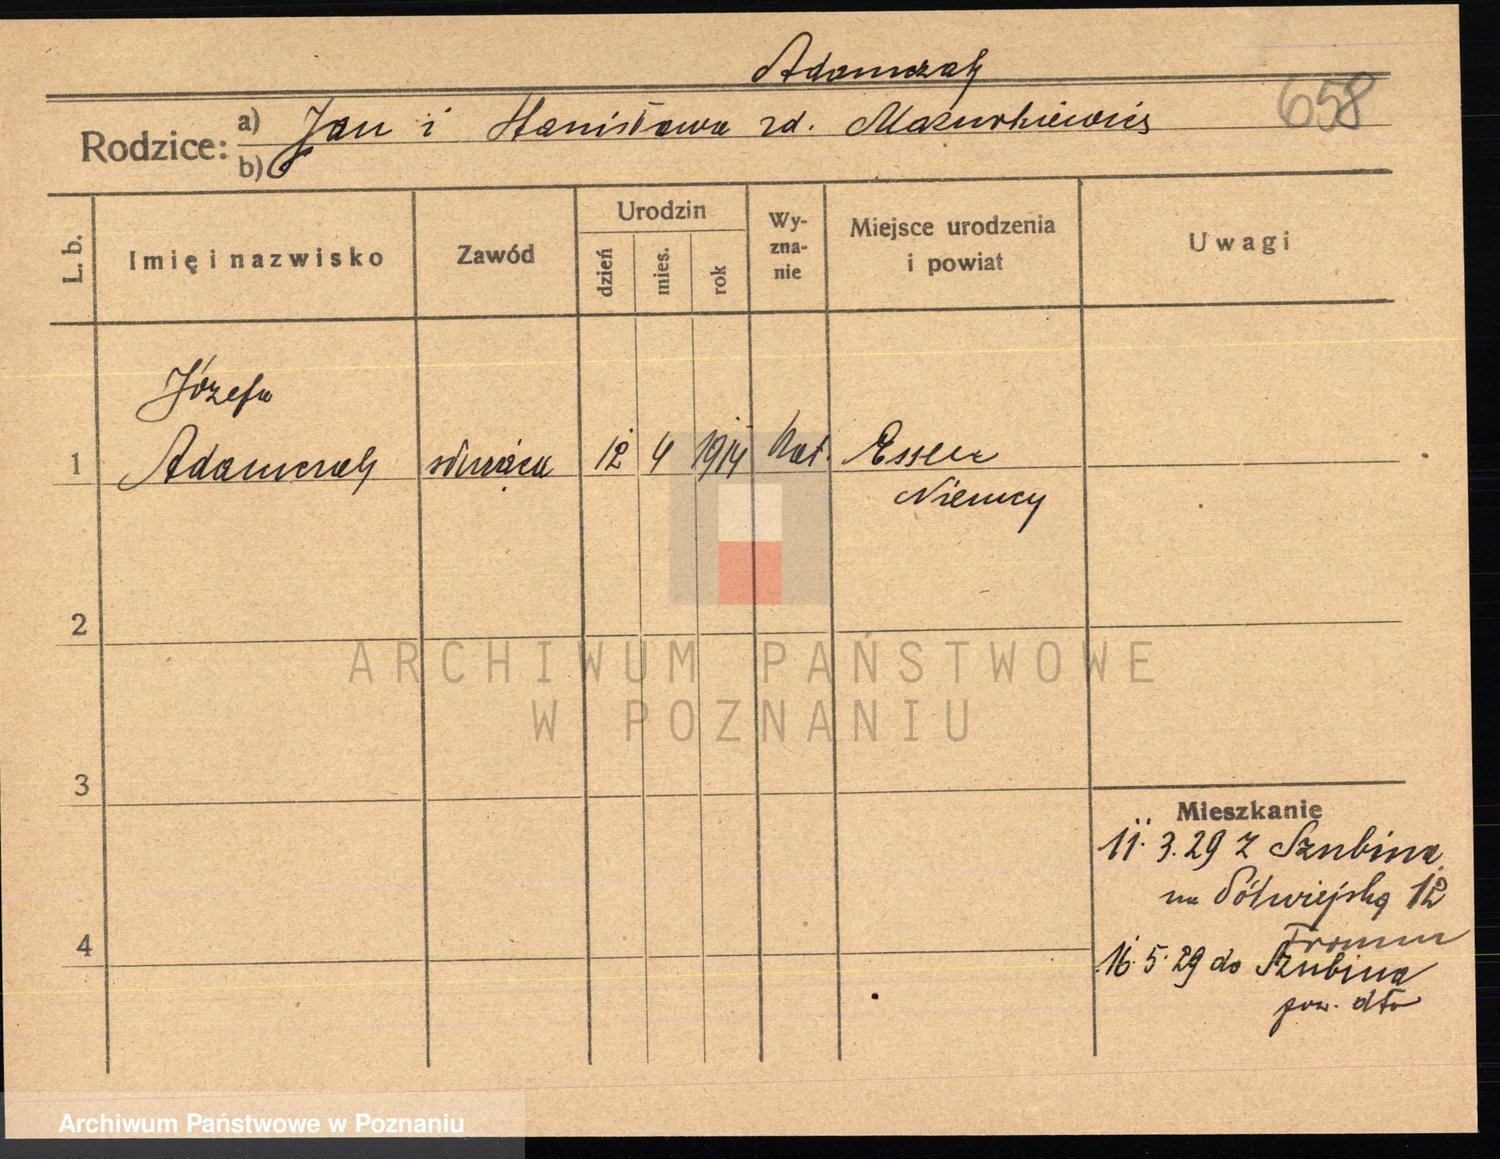 Adamczak
658
Rodzice: a) Jan i Stanisława zd. Mazurkiewicz
b)
L. b.
Imię i nazwisko
Zawód
Urodzin
dzień
mies.
rok
Wy-
zna-
nie
Miejsce urodzenia
i powiat
Uwagi
Józefa
1 Adamczak służąca 12 4 1914 kat. Essen
Niemcy
2
ARCHIWUM PAŃSTWOWE
W POZNANIU
3
Mieszkanie
11. 3. 29 z Szubina
na Półwiejską 12
4
Fromm
16. 5. 29 do Szubina
pow. dto
Archiwum Państwowe w Poznaniu